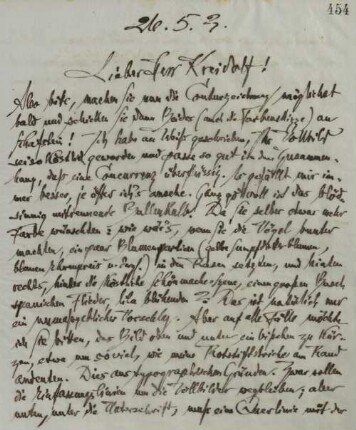 454
26. 5. 3.
Lieber Herr Kreidolf!
Also bitte, machen Sie nun die Conturzeichnung möglichst
bald und schicken Sie dann Beides (auch die Farbenskizze) an
Schafstein! Ich habe an Weiß geschrieben, Ihr Vollbild
sei so köstlich geworden und passe so gut in den Zusammen-
hang, daß eine Concurrenz überflüssig. Es gefällt mir im-
mer besser, je öfter ich's ansehe. Ganz gottvoll ist das blöd-
sinnig mitrennende Bullenkalb. Da Sie selber etwas mehr
Farbe wünschten: wie wär's, wenn Sie die Vögel bunter
machten, ein paar Blumen (gelbe Sumpfdotterblumen,
blauen Ehrenpreis u. drgl.) in den Rasen setzten, und hinten
rechts, hinter die köstliche, einen großen Busch
spanischen Flieder, lila blühenden? Das ist natürlich nur
ein unmaßgeblicher Vorschlag. Aber auf alle Fälle möchte
ich Sie bitten, das Bild oben und unten ein bißchen zu kür-
zen, etwa um soviel, wie meine Rotstiftstriche am Rand
andeuten. Dies aus typographischen Gründen. Zwar sollen
die Einfassungslinien um die Vollbilder wegbleiben; aber
unten, unter die Unterschrift, muß eine Querlinie mit der